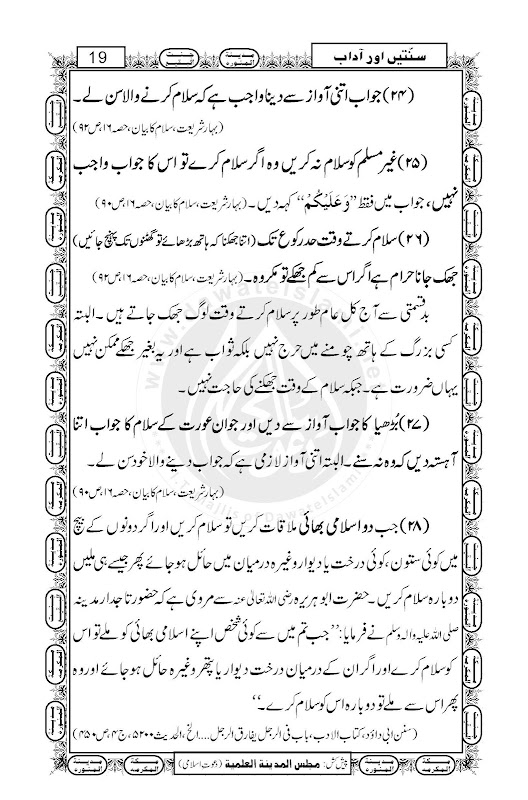 سنّتیں اور آداب
جنت البقیع
مدینۃ المنورہ
19
(۲۴) جواب اتنی آواز سے دینا واجب ہے کہ سلام کرنے والا سن لے۔
(بہار شریعت، سلام کا بیان، حصہ ۱۶، ص ۹۲)
(۲۵) غیر مسلم کو سلام نہ کریں وہ اگر سلام کرے تو اس کا جواب واجب
نہیں، جواب میں فقط ”وَعَلَیْکُمْ“ کہہ دیں۔ (بہار شریعت، سلام کا بیان، حصہ ۱۶، ص ۹۰)
(۲۶) سلام کرتے وقت حد رکوع تک (اتنا جھکنا کہ ہاتھ بڑھائے تو گھٹنوں تک پہنچ جائیں)
جھک جانا حرام ہے اگر اس سے کم جھکے تو مکروہ۔ (بہار شریعت، سلام کا بیان، حصہ ۱۶، ص ۹۲)
بدقسمتی سے آج کل عام طور پر سلام کرتے وقت لوگ جھک جاتے ہیں۔ البتہ
کسی بزرگ کے ہاتھ چومنے میں حرج نہیں بلکہ ثواب ہے اور یہ بغیر جھکے ممکن نہیں
یہاں ضرورت ہے۔ جبکہ سلام کے وقت جھکنے کی حاجت نہیں۔
(۲۷) بُڑھیا کا جواب آواز سے دیں اور جوان عورت کے سلام کا جواب اتنا
آہستہ دیں کہ وہ نہ سنے۔ البتہ اتنی آواز لازمی ہے کہ جواب دینے والا خود سن لے۔
(بہار شریعت، سلام کا بیان، حصہ ۱۶، ص ۹۰)
(۲۸) جب دو اسلامی بھائی ملاقات کریں تو سلام کریں اور اگر دونوں کے بیچ
میں کوئی ستون، کوئی درخت یا دیوار وغیرہ درمیان میں حائل ہو جائے پھر جیسے ہی ملیں
دوبارہ سلام کریں۔ حضرت ابو ہریرہ رضی اللہ تعالیٰ عنہ سے مروی ہے کہ حضور تاجدار مدینہ
صلی اللہ علیہ والہ وسلم نے فرمایا: ”جب تم میں سے کوئی شخص اپنے اسلامی بھائی کو ملے تو اس
کو سلام کرے اور اگر ان کے درمیان درخت دیوار یا پتھر وغیرہ حائل ہو جائے اور وہ
پھر اس سے ملے تو دوبارہ اس کو سلام کرے۔“
(سنن ابی داؤد، کتاب الادب، باب فی الرجل یفارق الرجل....الخ، الحدیث ۵۲۰۰، ج ۴، ص ۴۵۰)
پیش کش: مجلس المدینۃ العلمیۃ (دعوت اسلامی)